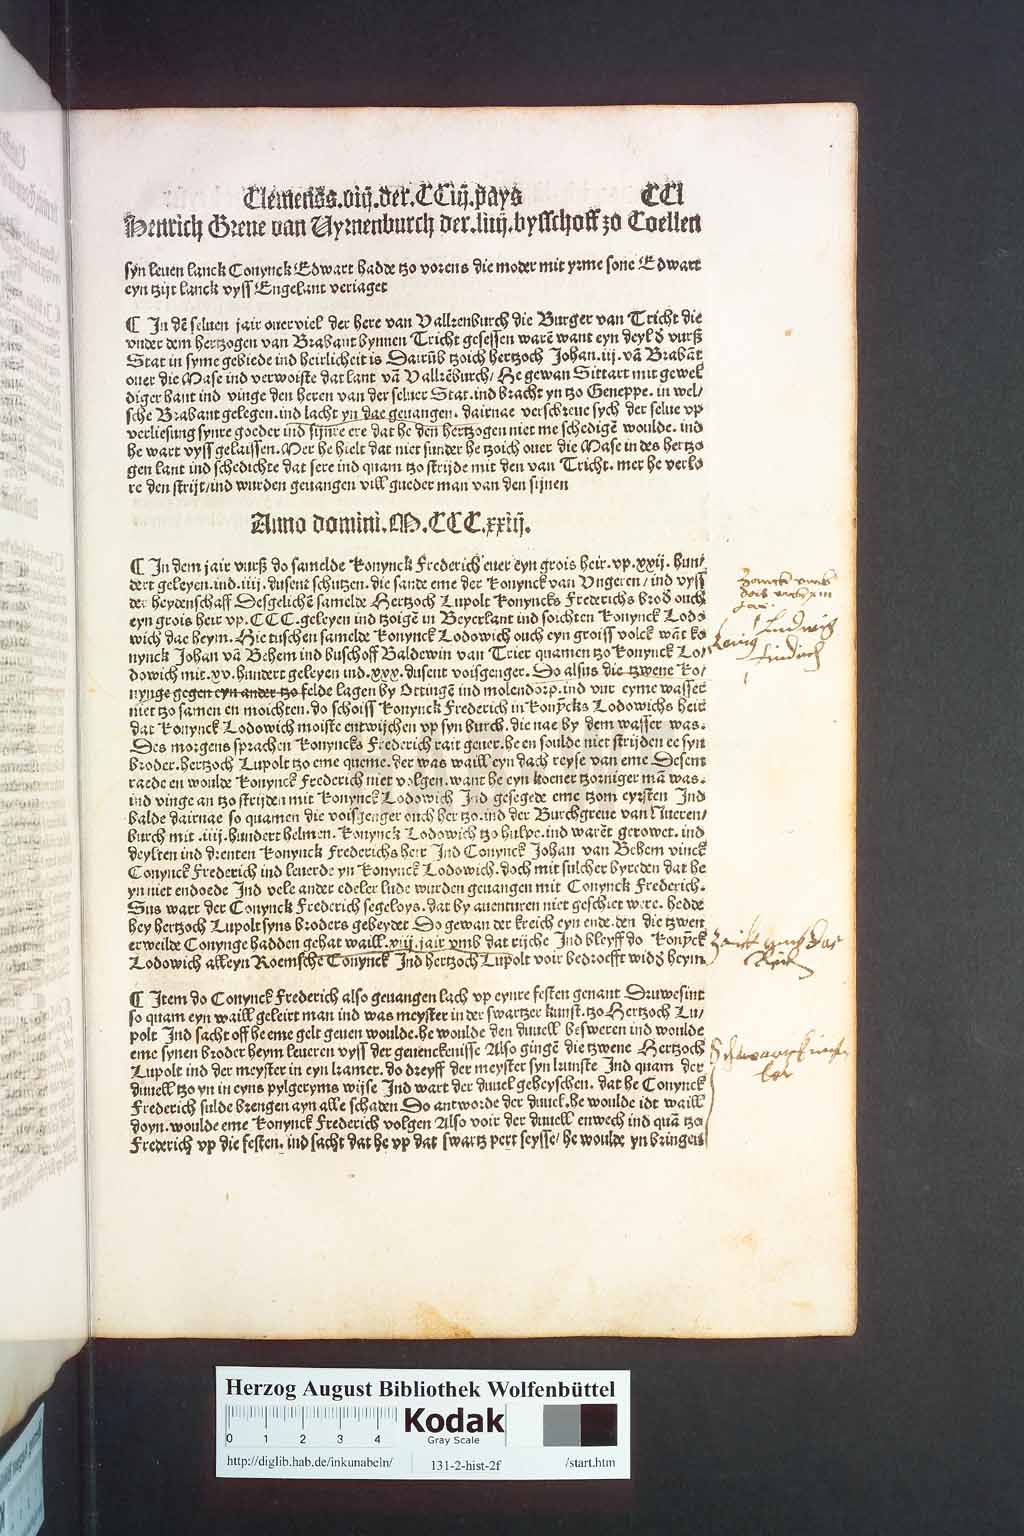 Clemens. viij. der. CCiij. pays CCI
Henrich Greue van Vyrnenburch der. liiij. bysschoff zo Coellen
syn leuen lanck Conynck Edwart hadde tzo vorens die moder mit yrme sone Edwart
eyn tzijt lanck vyss Engelant veriaget
¶ In dē seluen jair ouerviel der here van Valkenburch die Burger van Tricht die
vnder dem hertzogen van Brabant bynnen Tricht gesessen warē want eyn deyl d' vurß
Stat in syme gebiede ind heirlicheit is Dairūb tzoich hertzoch Johan. iij. vā Brabāt
ouer die Mase ind verwoiste dat lant vā Valkēburch/ He gewan Sittart mit gewel
diger hant ind vinge den heren van der seluer Stat. ind bracht yn tzo Geneppe. in wel/
sche Brabant gelegen. ind lacht yn dae geuangen. dairnae verschreue sych der selue vp
verliesung synre goeder ind sijnre ere dat he den hertzogen niet me schedigē woulde. ind
he wart vyss gelaissen. Mer he hielt dat niet sunder he tzoich ouer die Mase in des hertzo
gen lant ind schedichte dat sere ind quam tzo strijde mit den van Tricht. mer he verlo
re den strijt/ ind wurden geuangen vill gueder man van den sijnen
Anno domini. M. CCC. xxiij.
¶ In dem jair vurß do samelde Konynck Frederich euer eyn grois heir. vp. xxij. hun/
dert geleyen. ind. iiij. dusent schutzen. die sande eme der Konynck van Vngeren/ ind vyss
der heydenschaff Desgelichē samelde Hertzoch Lupolt Konyncks Frederichs brod' ouch
eyn grois heir vp. CCC. geleyen ind tzoigē in Beyerlant ind soichten Konynck Lodo
wich dae heym. Hie tuschen samelde Konynck Lodowich ouch eyn groiss volck wāt ko
nynck Johan vā Behem ind buschoff Baldewin van Trier quamen tzo Konynck Lo/
dowich mit. xv. hundert geleyen ind. xxx. dusent voisgenger. Do alsus die tzwene Ko/
nynge gegen eyn ander tzo felde lagen by Ottingē ind molendorp. ind vur eyme wasser
niet tzo samen en moichten. do schoiss Konynck Frederich in Konȳcks Lodowichs heir
dat Konynck Lodowich moiste entwijchen vp syn burch. die nae by dem wasser was.
Des morgens sprachen Konyncks Frederich rait geuer. he en soulde niet strijden ee syn
broder. hertzoch Lupolt tzo eme queme. der was waill eyn dach reyse van eme Desem
raede en woulde Konynck Frederich niet volgen. want he eyn koener tzorniger mā was.
ind vinge an tzo strijden mit Konynck Lodowich Ind gesegede eme tzom eyrsten Ind
balde dairnae so quamen die voisgenger ouch her tzo. ind der Burchgreue van Nueren/
burch mit. iiij. hundert helmen. Konynck Lodowich tzo hulpe. ind warēt gerowet. ind
deylten ind drenten Konynck Frederichs heir Ind Conynck Johan van Behem vinck
Conynck Frederich ind leuerde yn Konynck Lodowich. doch mit sulcher byreden dat he
yn niet endoede Ind vele ander edeler lude wurden geuangen mit Conynck Frederich.
Sus wart der Conynck Frederich segeloys. dat by auenturen niet geschiet were. hedde
hey hertzoch Lupolt syns broders gebeydet Do gewan der kreich eyn ende. den die tzwen
erweilde Conynge hadden gehat waill. viij. jair vmb dat rijche Ind bleyff do Konȳck
Lodowich alleyn Roemsche Conynck Ind hertzoch Lupolt voir bedroefft wid' heym
¶ Item do Conynck Frederich also geuangen lach vp eynre festen genant Druwesint
so quam eyn waill geleirt man ind was meyster in der swartzer kunst. tzo Hertzoch Lu/
polt Ind sacht off he eme gelt geuen woulde. he woulde den duuell besweren ind woulde
eme synen broder heym leueren vyss der geuenckenisse Also gingē die tzwene Hertzoch
Lupolt ind der meyster in eyn kamer. do dreyff der meyster syn kunste Ind quam der
duuell tzo yn in eyns pylgeryms wijse Ind wart der duuel geheyschen. dat he Conynck
Frederich sulde brengen ayn alle schaden Do antworde der duuel. he woulde idt waill
doyn. woulde eme Konynck Frederich volgen Also voir der duuell enwech ind quā tzo
Frederich vp die festen. ind sacht dat he vp dat swartz pert seysse/ he woulde yn bringen
Ludwig
Herzog August Bibliothek Wolfenbüttel
0 1 2 3 4
Kodak
Gray Scale
http://diglib.hab.de/inkunabeln/ 131-2-hist-2f /start.htm